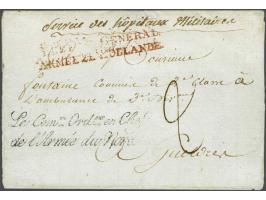 Service des hôpitaux Militaires
GÉNÉRAL
ARMÉE DE HOLLANDE
Monsieur
fontaine Commis de 2e Classe à
L'ambulance de
Le Comre Ordeur en Chef
de l'Armée du Nord
2